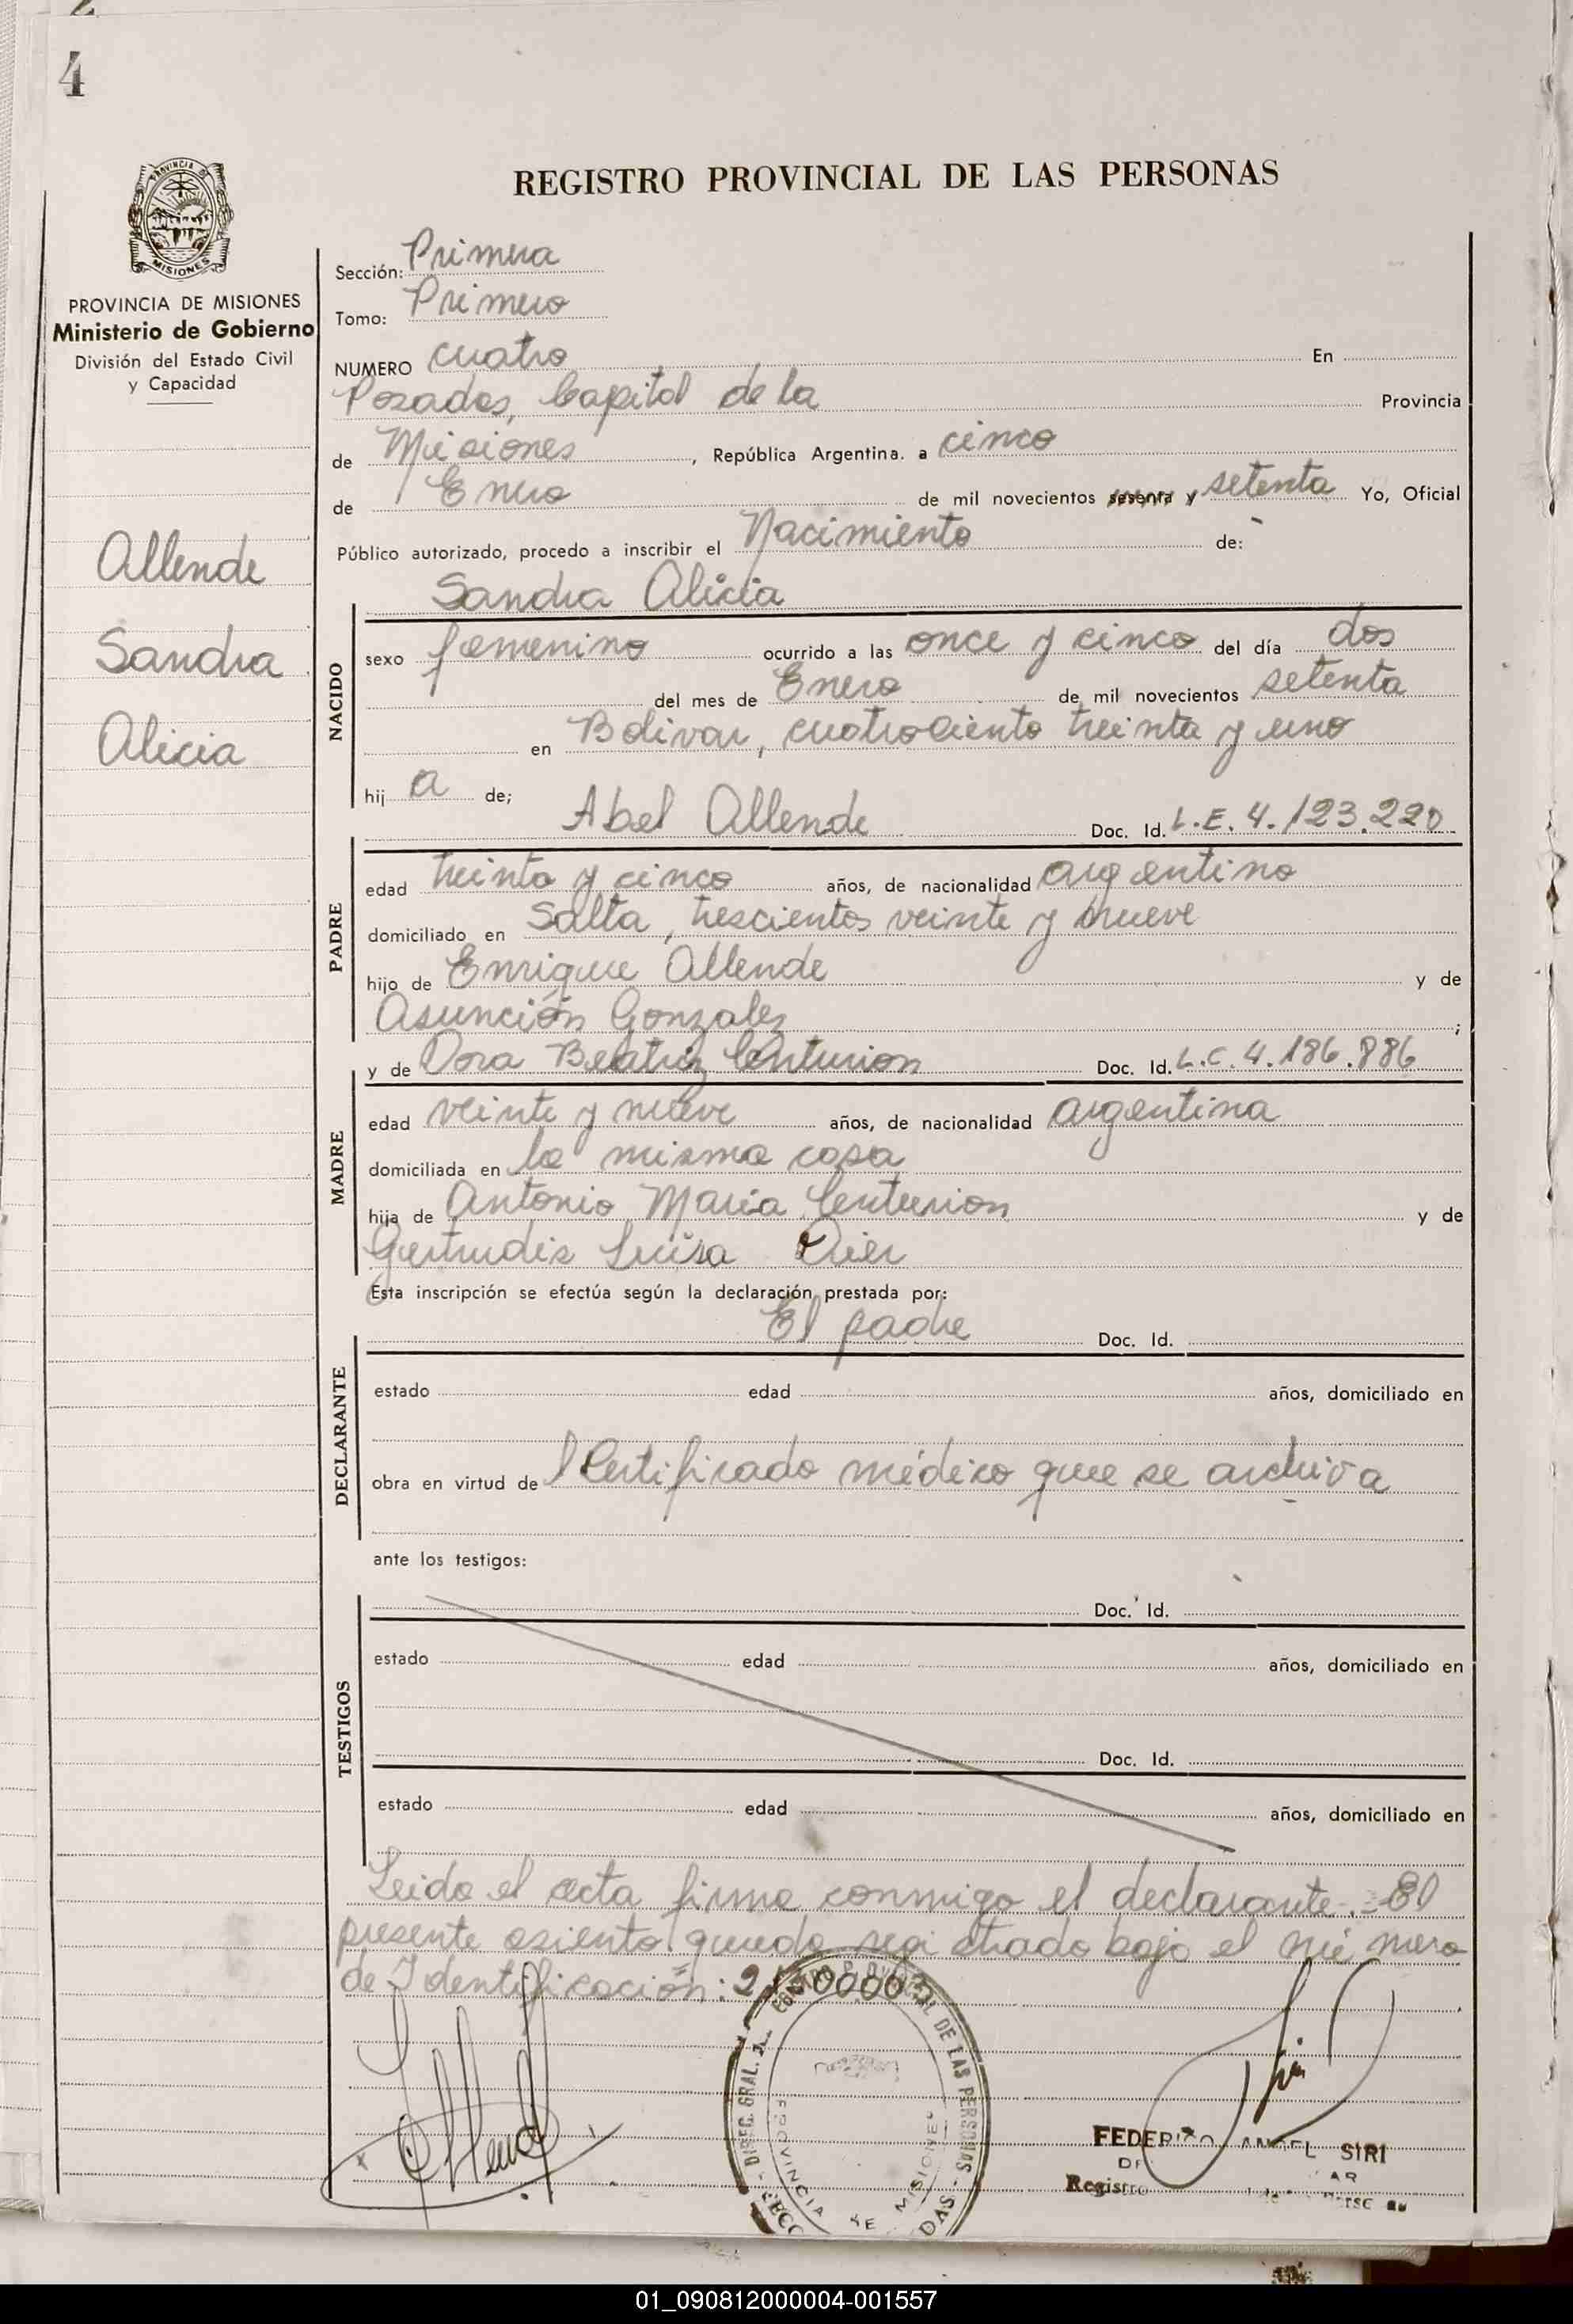 4
PROVINCIA
MISIONES
PROVINCIA DE MISIONES
Ministerio de Gobierno
División del Estado Civil
y Capacidad
Allende
Sandra
Alicia
REGISTRO PROVINCIAL DE LAS PERSONAS
Sección: Primera
Tomo: Primero
NUMERO cuatro En
Posadas, Capital de la Provincia
de Misiones, República Argentina. a cinco
de Enero de mil novecientos sesenta y setenta Yo, Oficial
Público autorizado, procedo a inscribir el Nacimiento de:
Sandra Alicia
NACIDO
sexo femenino ocurrido a las once y cinco del día dos
del mes de Enero de mil novecientos setenta
en Bolivar, cuatrociento treinta y uno
hij a de;
Abel Allende Doc. Id. L.E. 4.123.220
PADRE
edad treinta y cinco años, de nacionalidad argentino
domiciliado en Salta, trescientos veinte y nueve
hijo de Enrique Allende y de
Asunción Gonzalez ;
y de Dora Beatriz Centurion Doc. Id. L.C. 4.186.886
MADRE
edad veinte y nueve años, de nacionalidad argentina
domiciliada en la misma casa
hija de Antonio Maria Centurion y de
Gertrudis Luisa
Esta inscripción se efectúa según la declaración prestada por:
El padre Doc. Id.
DECLARANTE
estado edad años, domiciliado en
obra en virtud de l Certificado médico que se archiva
ante los testigos:
Doc. Id.
TESTIGOS
estado edad años, domiciliado en
Doc. Id.
estado edad años, domiciliado en
Leido el acta firma conmigo el declarante.- El
presente asiento queda registrado bajo el número
de Identificación:
DE LAS PERSONAS
PROVINCIA DE MISIONES
FEDERICO ANGEL SIRI
Registro
01_090812000004-001557